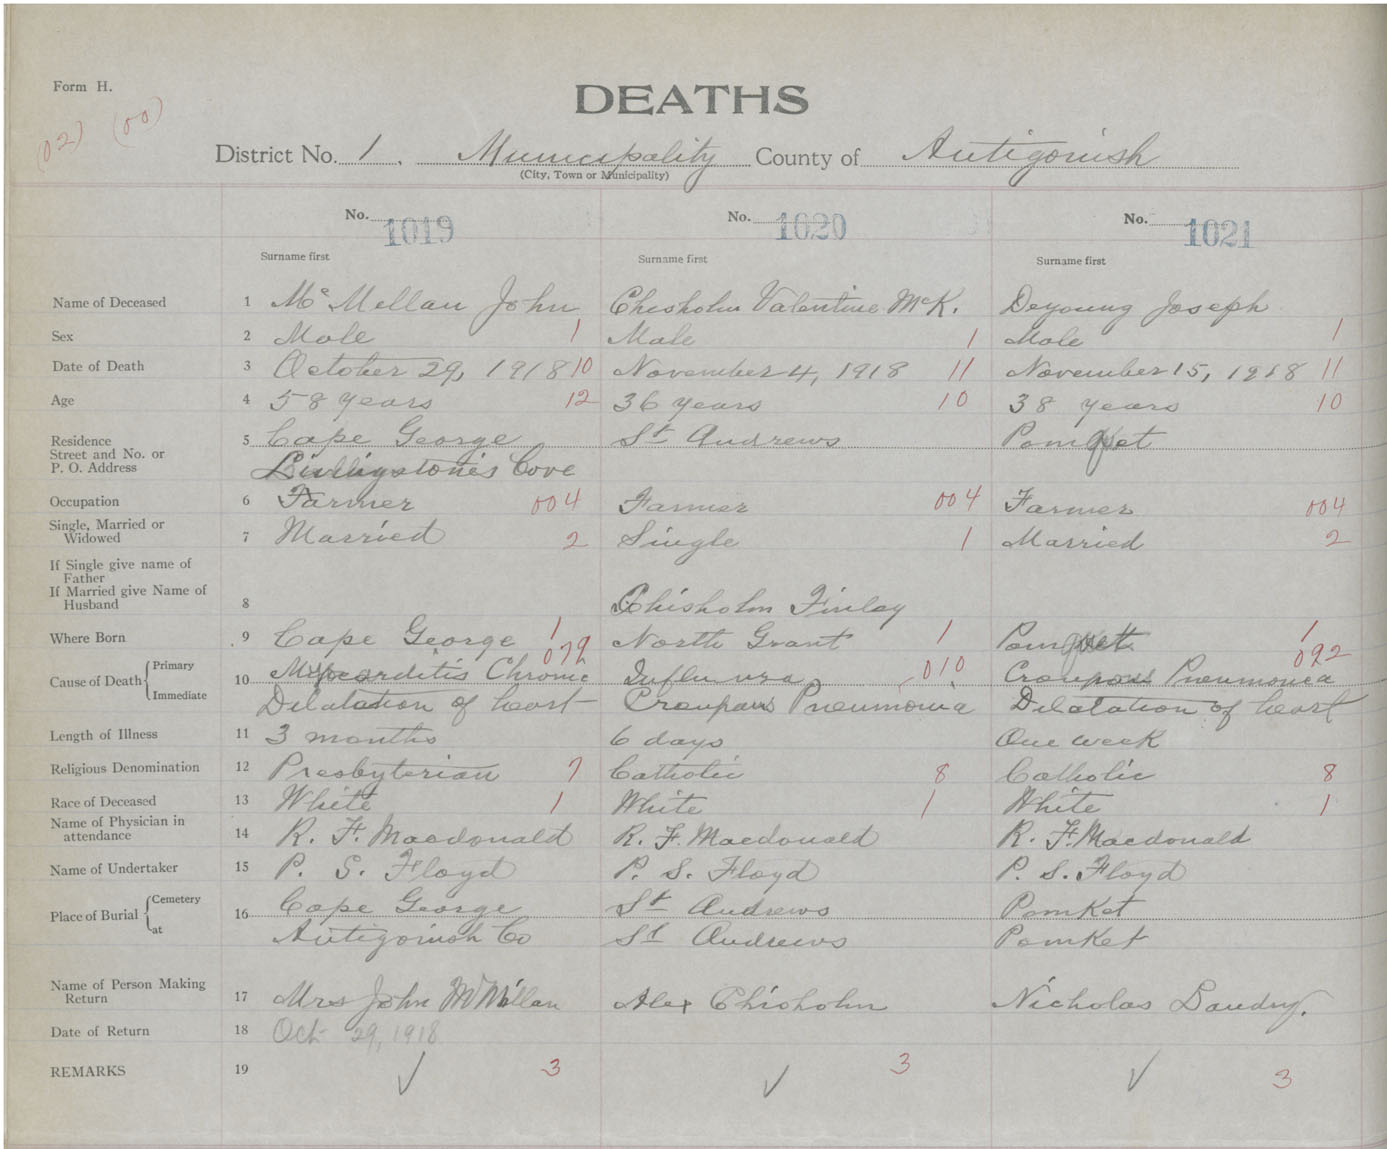 Form H.
(02) (00)
DEATHS
District No. 1. Municipality County of Antigonish
(City, Town or Municipality)
No. 1019 No. 1020 No. 1021
Surname first Surname first Surname first
Name of Deceased 1 Mc Mellan John Chisholm Valentine McK. Deyoung Joseph
Sex 2 Male 1 Male 1 Male 1
Date of Death 3 October 29, 1918 10 November 4, 1918 11 November 15, 1918 11
Age 4 58 years 12 36 years 10 38 years 10
Residence 5 Cape George St Andrews Pomquet
Street and No. or
P. O. Address Livingstones Cove
Occupation 6 Farmer 004 Farmer 004 Farmer 004
Single, Married or
Widowed 7 Married 2 Single 1 Married 2
If Single give name of
Father
If Married give Name of
Husband 8 Chisholm Finlay
Where Born 9 Cape George 1 North Grant 1 Pomquet 1
079 010 092
Cause of Death { Primary 10 Myocarditis Chronic Influenza Croupous Pneumonia
Immediate Dilatation of heart Croupous Pneumonia Dilatation of heart
Length of Illness 11 3 months 6 days One week
Religious Denomination 12 Presbyterian 7 Catholic 8 Catholic 8
Race of Deceased 13 White 1 White 1 White 1
Name of Physician in
attendance 14 R. F. Macdonald R. F. Macdonald R. F. Macdonald
Name of Undertaker 15 P. S. Floyd P. S. Floyd P. S. Floyd
Place of Burial { Cemetery 16 Cape George St Andrews PomKet
at Antigonish Co St Andrews PomKet
Name of Person Making
Return 17 Mrs John McMillan Alex Chisholm Nicholas Landry.
Date of Return 18 Oct 29, 1918
REMARKS 19 ✓ 3 ✓ 3 ✓ 3